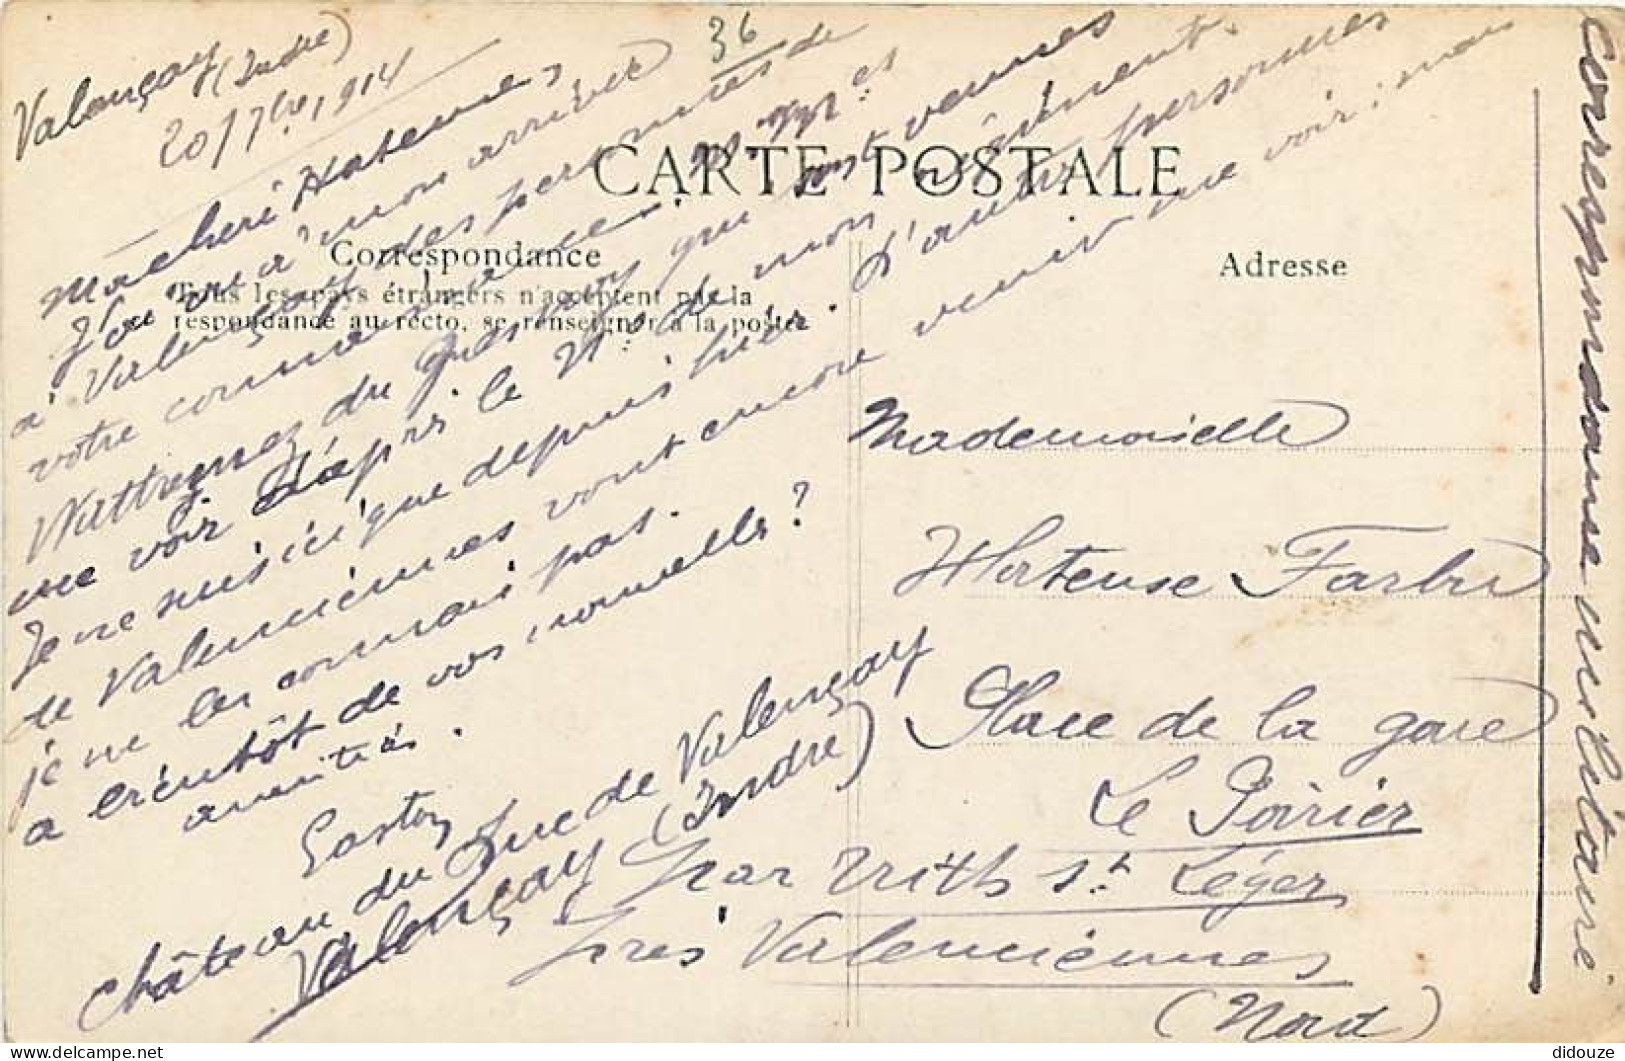 36
Valençay (Indre)
20/7bre, 1914
Ma chérie Hortense,
J'ai vu à mon arrivée
à Valençay des personnes de
votre connaissance.
Wattremez du Quesnoy qui sont venues
me voir d'après le de mon régiment.
Je ne suis ici que depuis hier. D'autres personnes
de Valenciennes vont encore venir me voir; mais
je ne les connais pas.
a bientôt de vos nouvelles?
amitiés.
Gaston
château du Duc de Valençay
Valençay (Indre)
CARTE POSTALE
Correspondance
Tous les pays étrangers n'acceptent pas la
respondance au recto, se renseigner à la poste
Adresse
Mademoiselle
Hortense Farbu
Place de la gare
Le Poirier
par Trith St Léger
près Valenciennes
(Nord)
Correspondance militaire
didouze